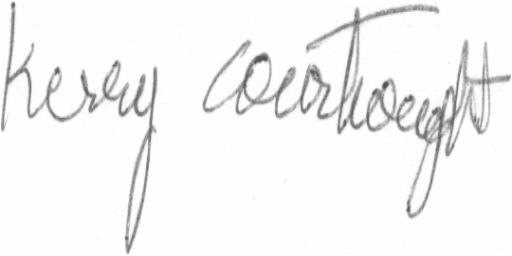 Kerry Courhought